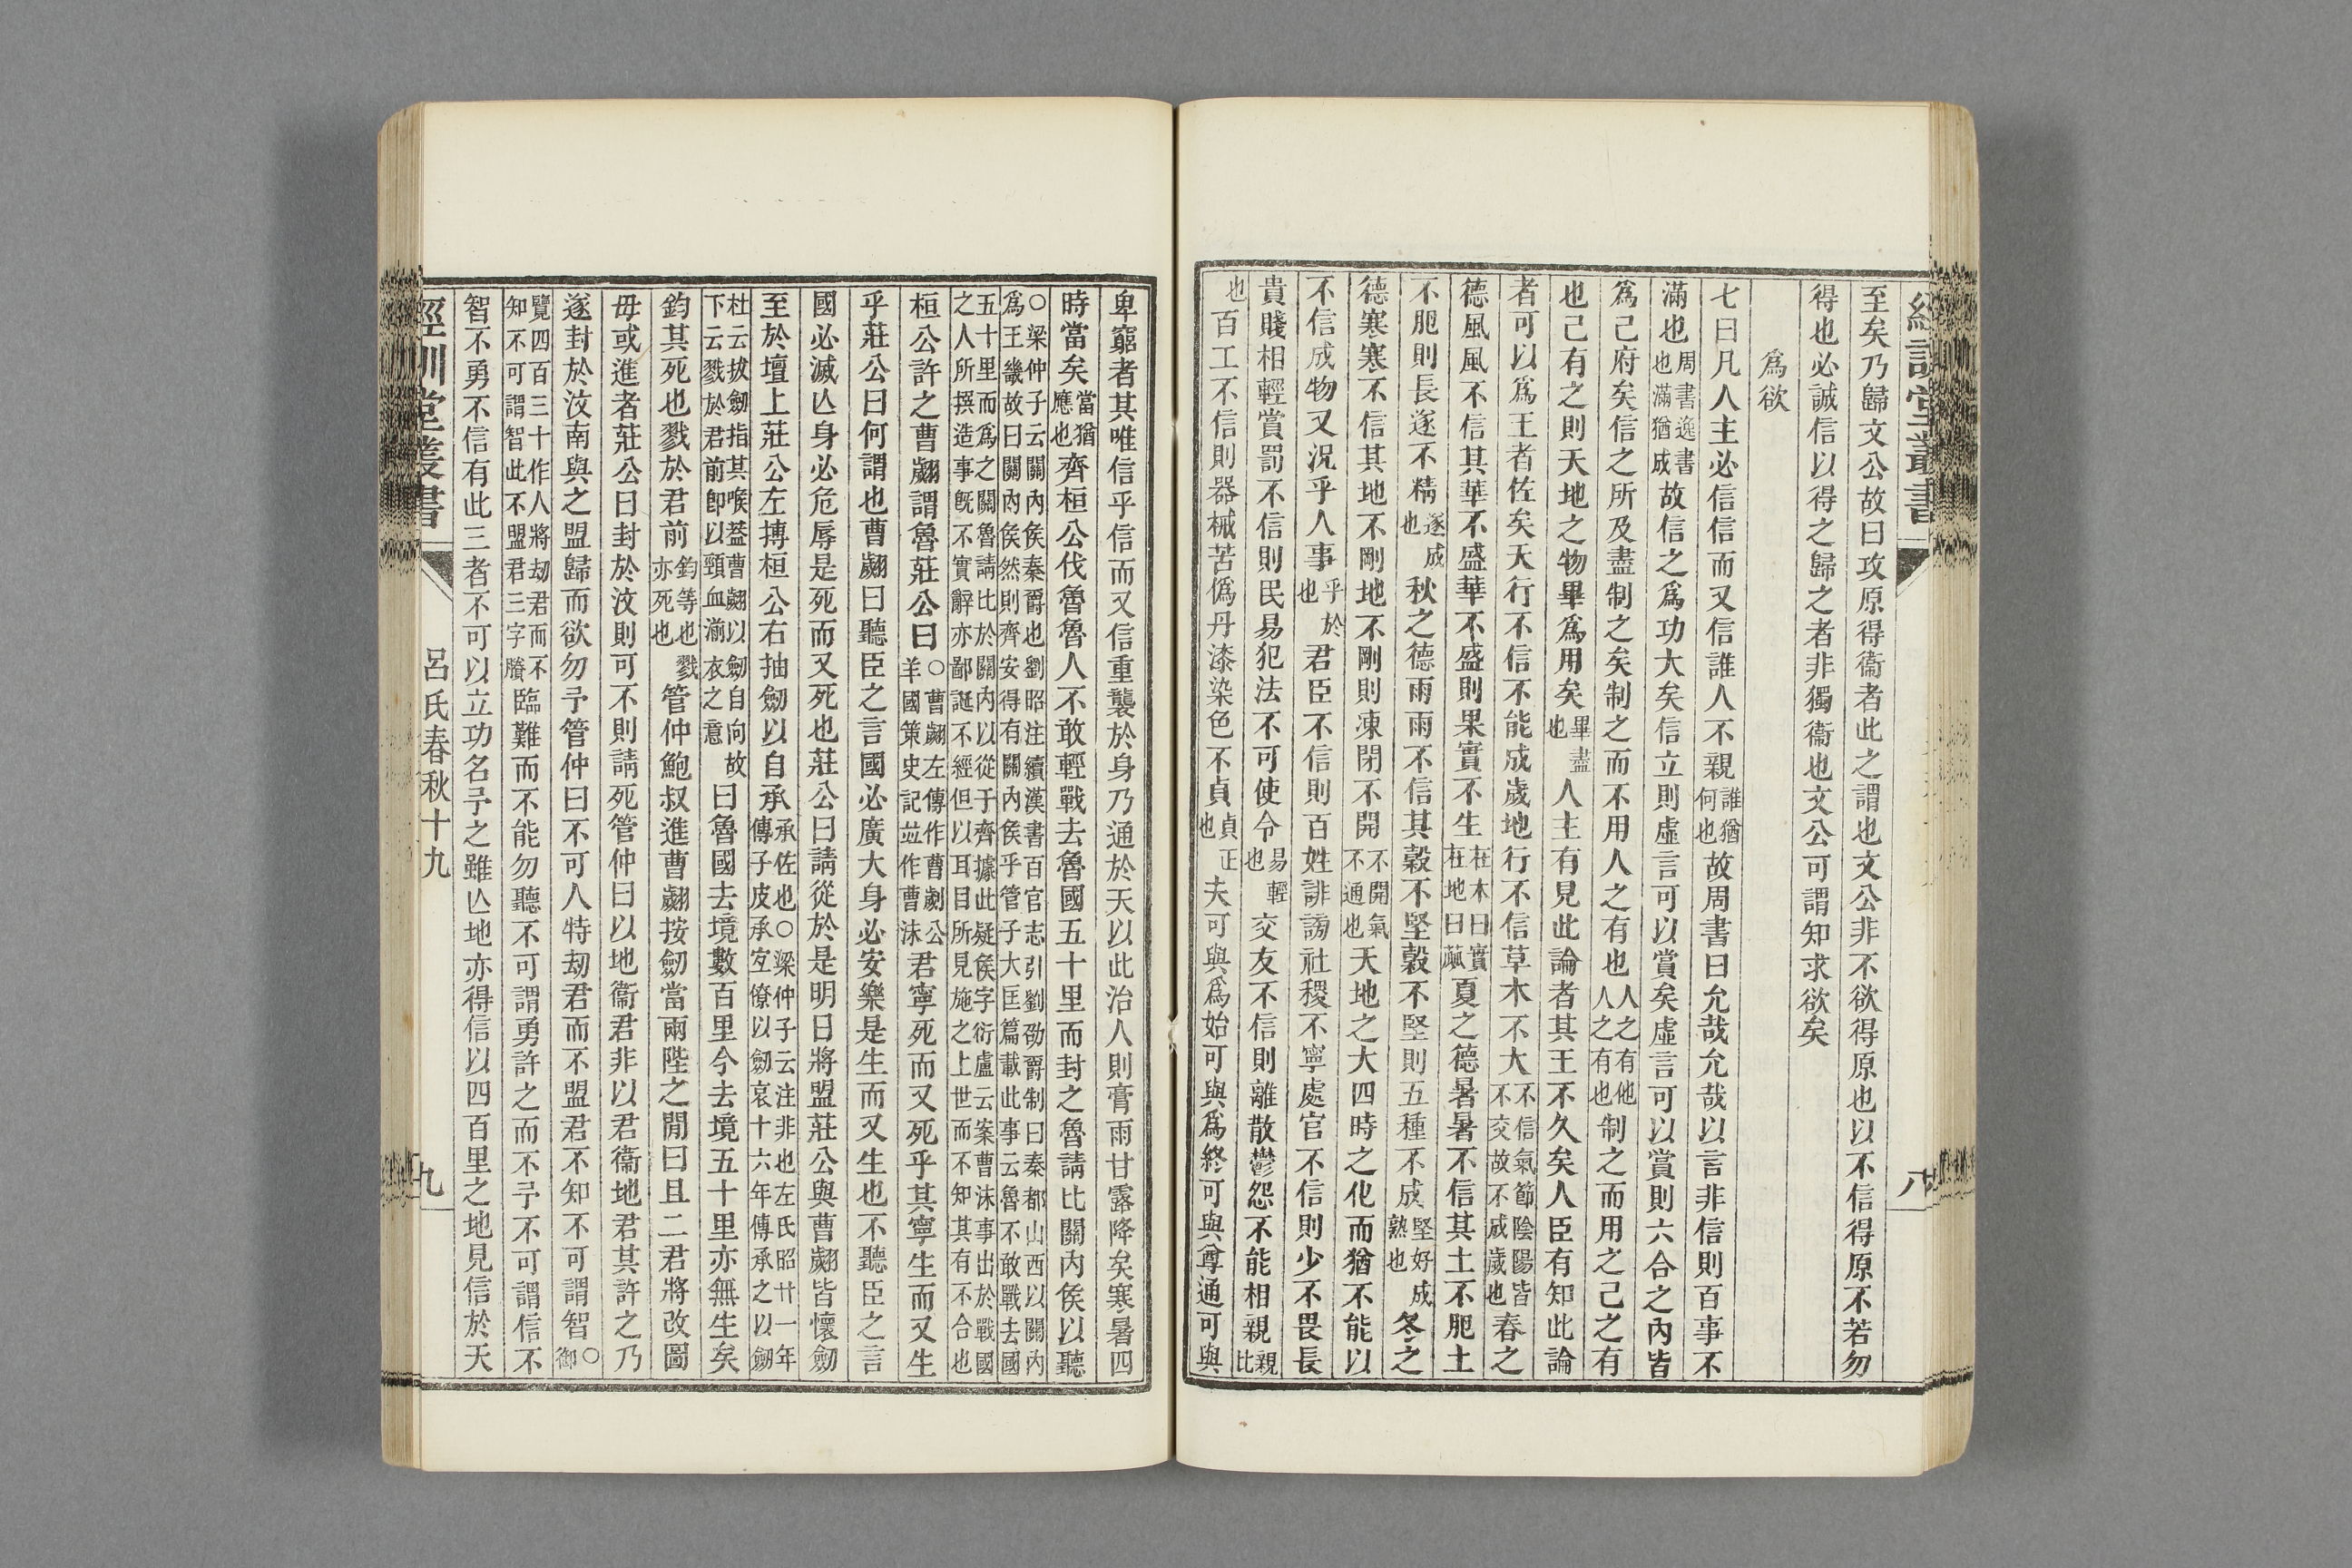 經訓堂叢書
八
至矣乃歸文公故曰攻原得衞者此之謂也文公非不欲得原也以不信得原不若勿
得也必誠信以得之歸之者非獨衞也文公可謂知求欲矣
爲欲
七曰凡人主必信信而又信誰人不親誰猶何也故周書曰允哉允哉以言非信則百事不
滿也周書逸書也滿猶成故信之爲功大矣信立則虛言可以賞矣虛言可以賞則六合之內皆
爲己府矣信之所及盡制之矣制之而不用人之有也人之有他人之有也制之而用之己之有
也己有之則天地之物畢爲用矣畢盡也人主有見此論者其王不久矣人臣有知此論
者可以爲王者佐矣天行不信不能成歲地行不信草木不大不信氣節陰陽皆不交故不成歲也春之
德風風不信其華不盛華不盛則果實不生在木曰實在地曰蓏夏之德暑暑不信其土不肥土
不肥則長遂不精遂成也秋之德雨雨不信其穀不堅穀不堅則五種不成堅好成熟也冬之
德寒寒不信其地不剛地不剛則凍閉不開不開氣不通也天地之大四時之化而猶不能以
不信成物又況乎人事乎於也君臣不信則百姓誹謗社稷不寧處官不信則少不畏長
貴賤相輕賞罰不信則民易犯法不可使令易輕也交友不信則離散鬱怨不能相親親比
也百工不信則器械苦僞丹漆染色不貞貞正也夫可與爲始可與爲終可與尊通可與
卑窮者其唯信乎信而又信重襲於身乃通於天以此治人則膏雨甘露降矣寒暑四
時當矣當猶應也齊桓公伐魯魯人不敢輕戰去魯國五十里而封之魯請比關內侯以聽
○梁仲子云關內侯秦爵也劉昭注續漢書百官志引劉劭爵制曰秦都山西以關內爲王畿故曰關內侯然則齊安得有關內侯乎管子大匡篇載此事云魯不敢戰去國
五十里而爲之關魯請比於關內以從于齊據此疑侯字衍盧云案曹沬事出於戰國之人所撰造事旣不實辭亦鄙誕不經但以耳目所見施之上世而不知其有不合也
桓公許之曹翽謂魯莊公曰○曹翽左傳作曹劌公羊國策史記並作曹沬君寧死而又死乎其寧生而又生
乎莊公曰何謂也曹翽曰聽臣之言國必廣大身必安樂是生而又生也不聽臣之言
國必滅亾身必危辱是死而又死也莊公曰請從於是明日將盟莊公與曹翽皆懷劒
至於壇上莊公左搏桓公右抽劒以自承承佐也○梁仲子云注非也左氏昭廿一年傳子皮承宜僚以劒哀十六年傳承之以劒
杜云拔劒指其喉葢曹翽以劒自向故下云戮於君前卽以頸血湔衣之意曰魯國去境數百里今去境五十里亦無生矣
鈞其死也戮於君前鈞等也戮亦死也管仲鮑叔進曹翽按劒當兩陛之閒曰且二君將改圖
毋或進者莊公曰封於汶則可不則請死管仲曰以地衞君非以君衞地君其許之乃
遂封於汶南與之盟歸而欲勿予管仲曰不可人特劫君而不盟君不知不可謂智○御
覽四百三十作人將劫君而不知不可謂智此不盟君三字賸臨難而不能勿聽不可謂勇許之而不予不可謂信不
智不勇不信有此三者不可以立功名予之雖亾地亦得信以四百里之地見信於天
經訓堂叢書
呂氏春秋十九
九